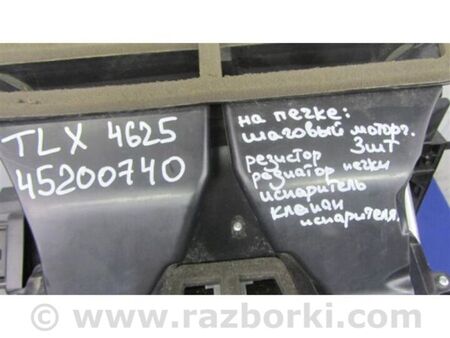 TLX 4625
45200740
на печке:
шаговый моторч.
3шт
резистор
редиатор печки
испаритель
клапан
испарителя.
www.razborki.com